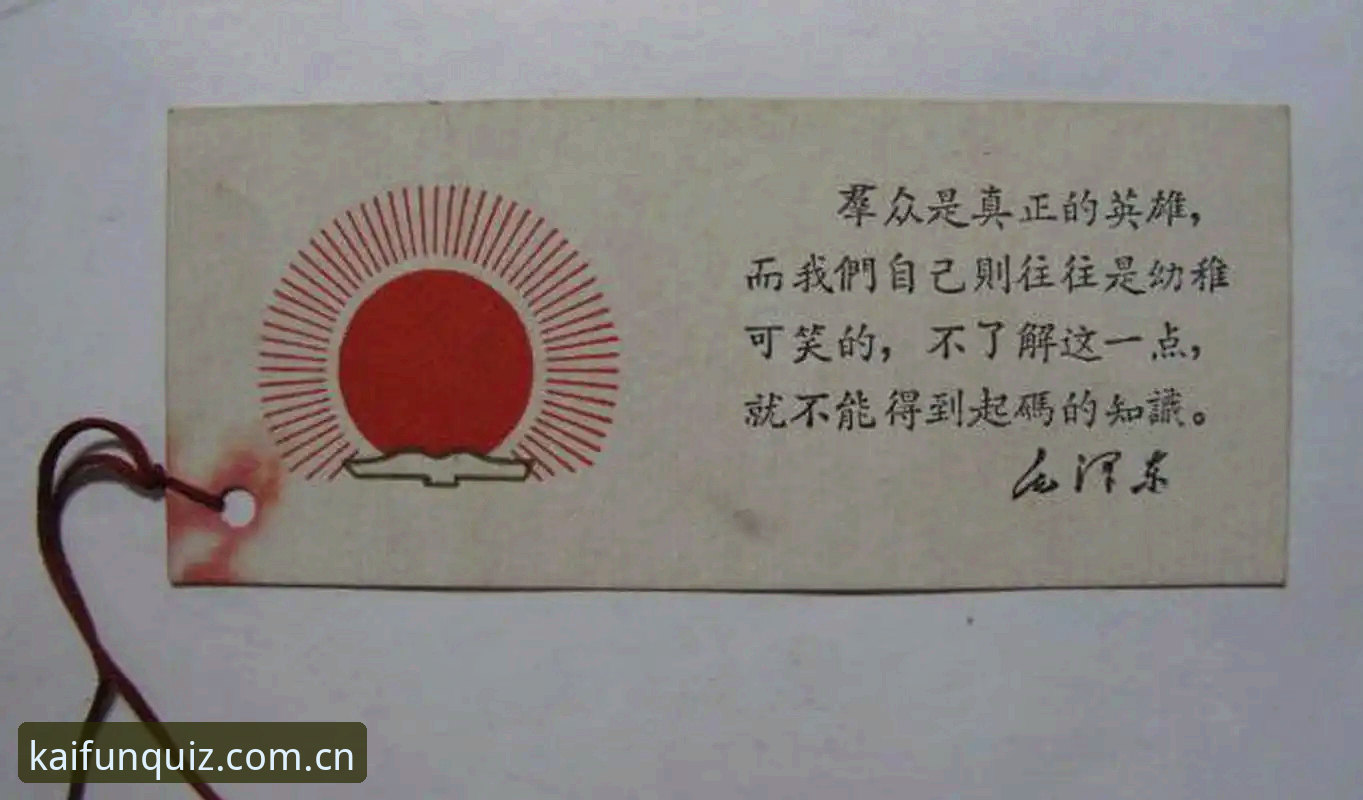 羣众是真正的英雄，
而我們自己則往往是幼稚
可笑的，不了解这一点，
就不能得到起碼的知識。
毛泽东
kaifunquiz.com.cn